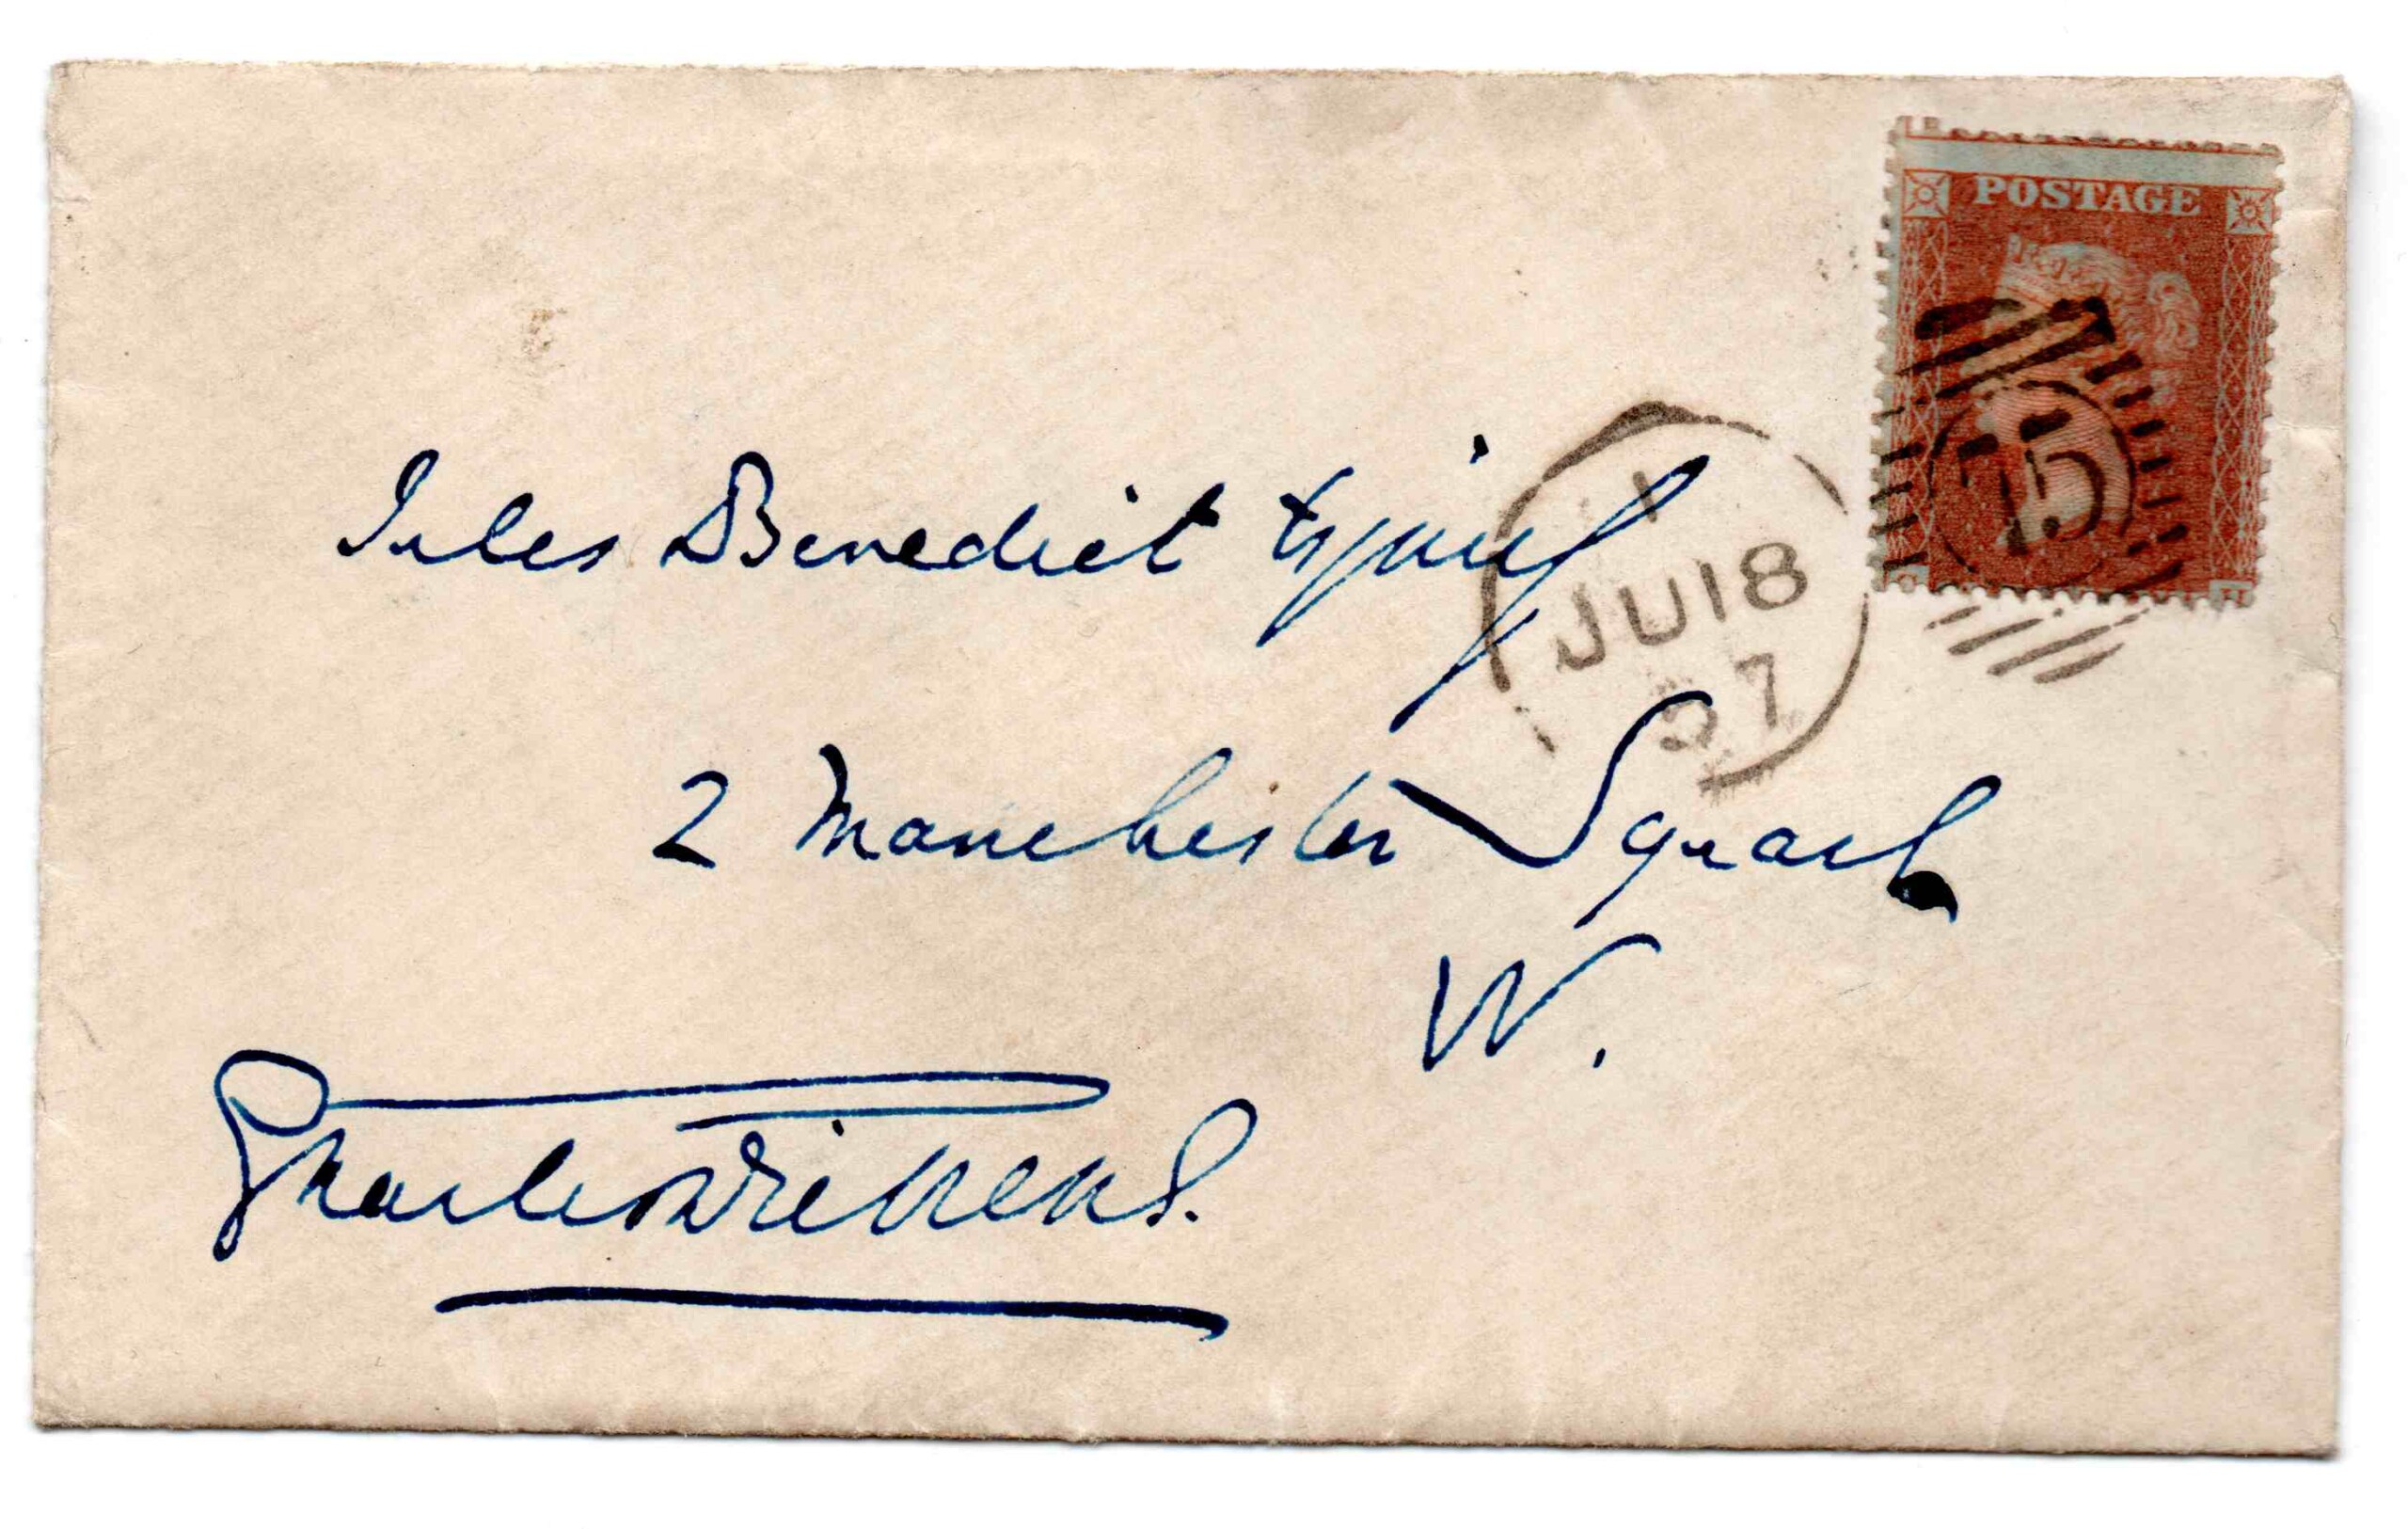 POSTAGE
15
JU 18
57
Jules Benedict Esquire
2 Manchester Square
W.
Charles Dickens.